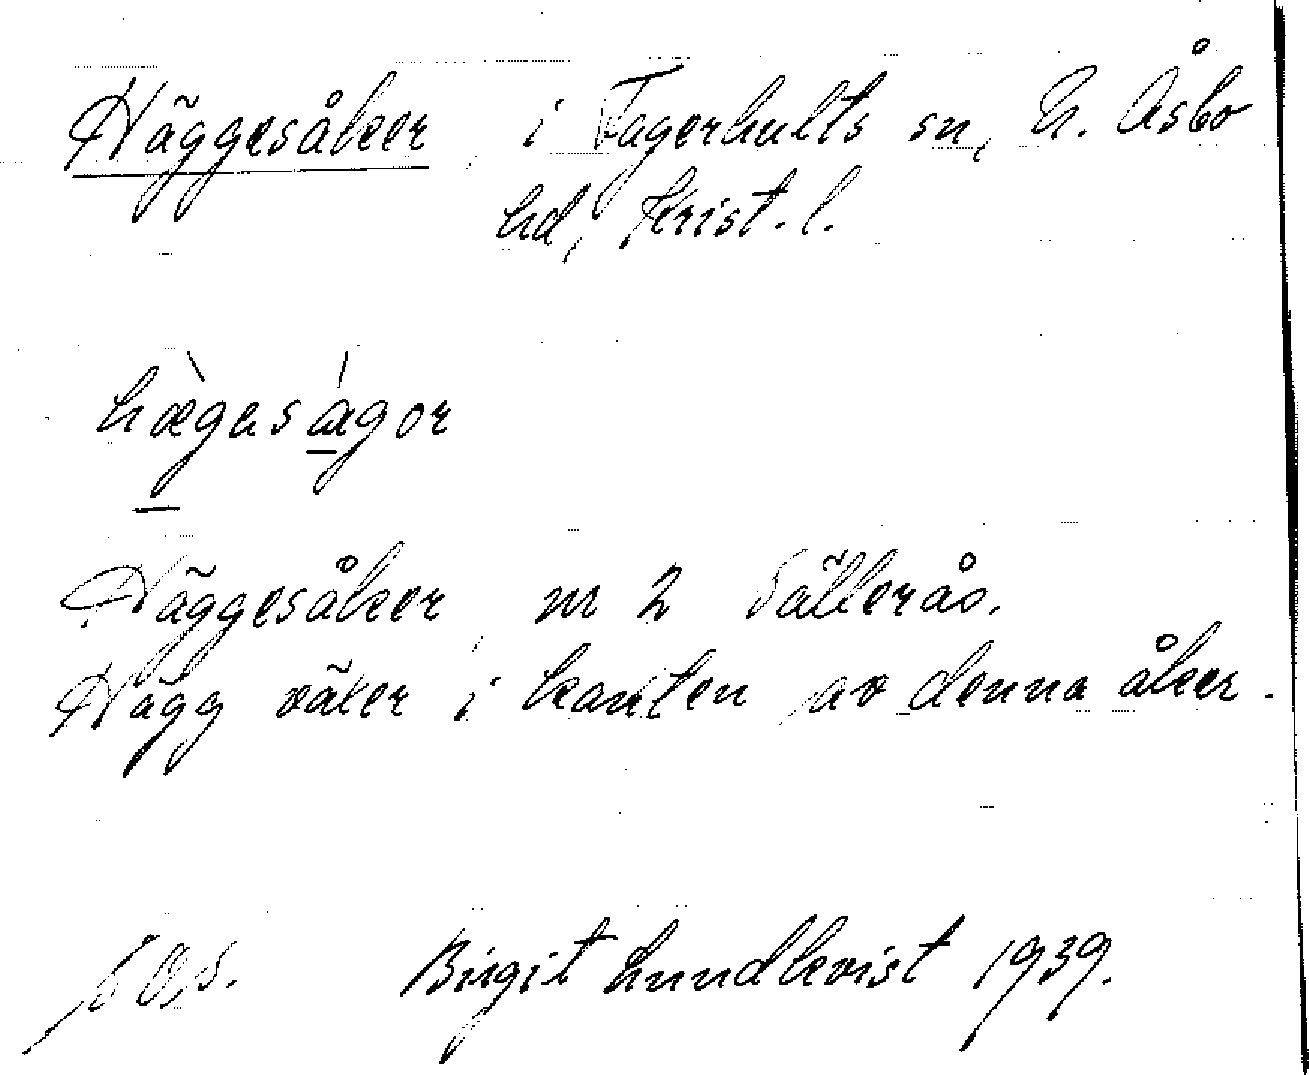 Häggesåker i Fagerhults sn, N. Åsbo
hd, Krist. l.
hæ̀gaságor
Häggesåker, nr 2 Sälleråс.
Hägg växer i kanten av denna åker.
Birgit Lundkvist 1939.